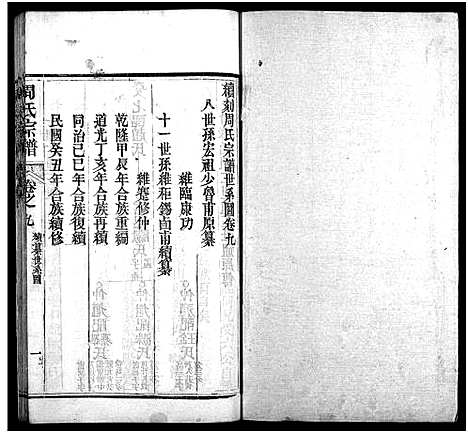 續刻周氏宗譜世系圖卷九
八世孫宏祖少魯甫原纂
維臨康功
十一世孫維柜錫卣甫續纂
維楚修仲
乾隆甲辰年合族重編
道光丁亥年合族再續
同治己巳年合族復續
民國癸丑年合族續修
周氏宗譜
卷之九
續纂世系圖
一